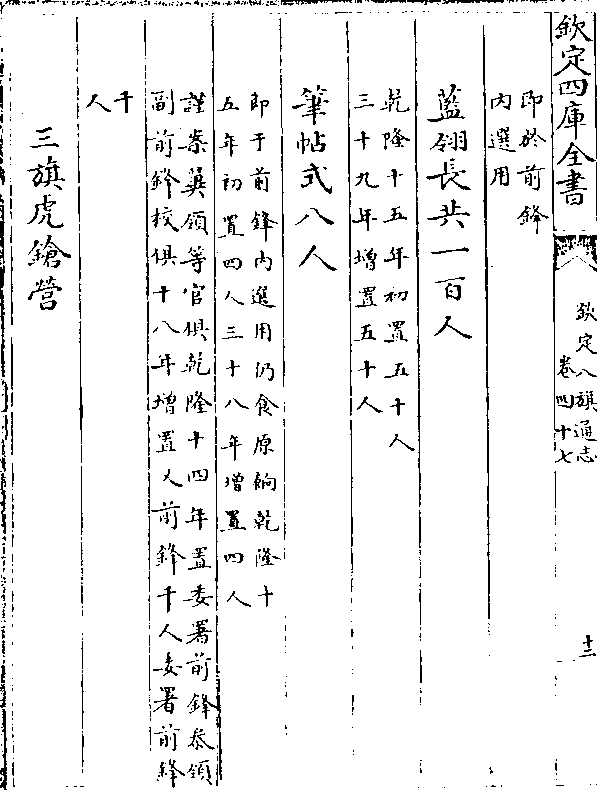 欽定四庫全書
欽定八旗通志
卷四十七
十二
即於前鋒
内選用
藍翎長共一百人
乾隆十五年初置五十人
三十九年增置五十人
筆帖式八人
即于前鋒内選用仍食原餉乾隆十
五年初置四人三十八年增置四人
謹案翼領等官俱乾隆十四年置委署前鋒叅領
副前鋒校俱十八年增置又前鋒千人委署前鋒
千
人
三旗虎鎗營